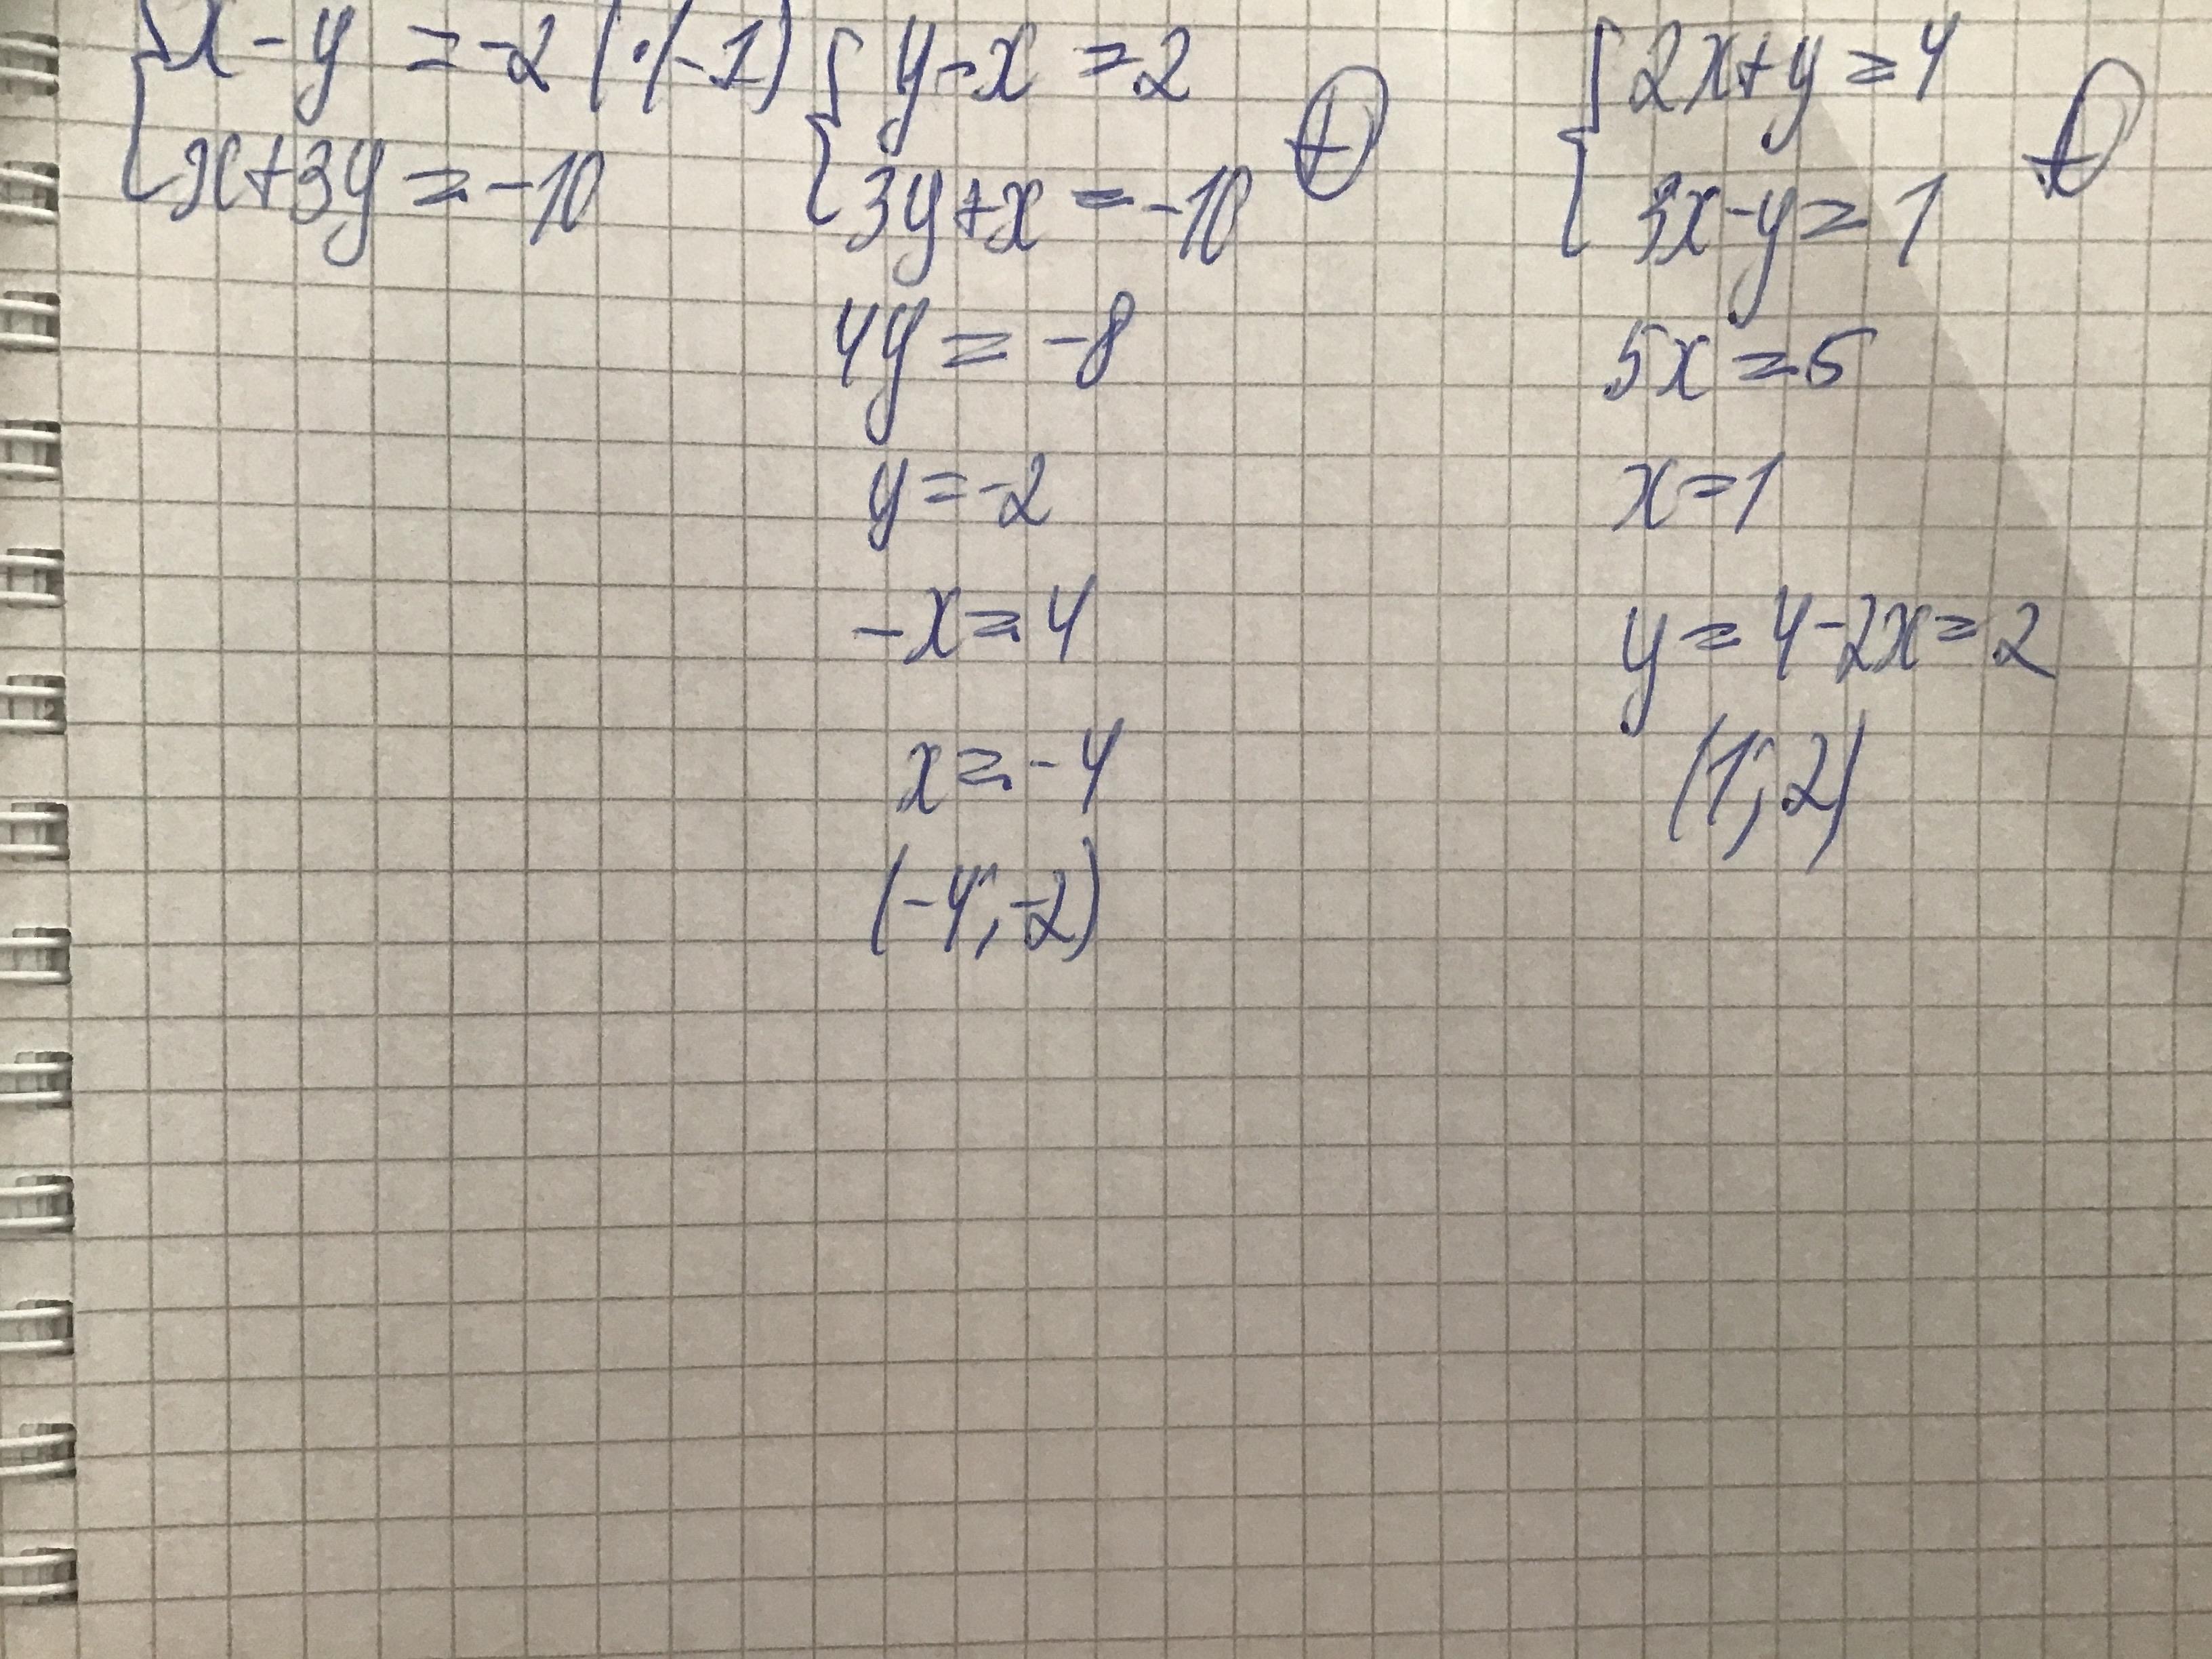 {x - y = -2 (·(-1)
{x+3y = -10
{y-x = 2
{3y+x = -10 ⊕
4y = -8
y = -2
-x = 4
x = -4
(-4; -2)
{2x+y = 4
{3x-y = 1 ⊕
5x = 5
x = 1
y = 4-2x = 2
(1; 2)